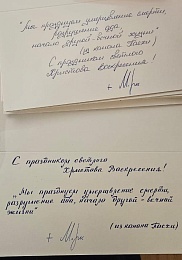 "Мы празднуем умерщвление смерти,
разрушение ада,
начало другой - вечной жизни"
(из канона Пасхи)
С праздником светлого
Христова Воскресения!
С праздником светлого
Христова Воскресения!
"Мы празднуем умерщвление смерти,
разрушение ада, начало другой - вечной
жизни"
(из канона Пасхи)